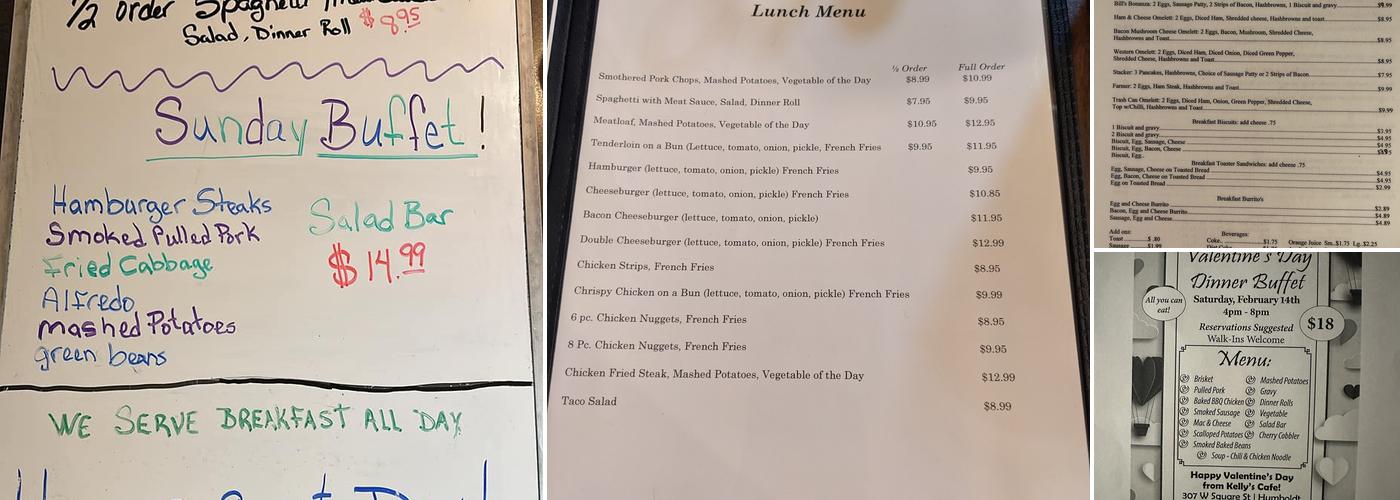 1/2 order Spaghetti
Salad, Dinner Roll $8.95
Sunday Buffet!
Hamburger Steaks
Smoked Pulled Pork
Fried Cabbage
Alfredo
mashed Potatoes
green beans
Salad Bar
$14.99
WE SERVE BREAKFAST ALL DAY
Lunch Menu
½ Order Full Order
Smothered Pork Chops, Mashed Potatoes, Vegetable of the Day $8.99 $10.99
Spaghetti with Meat Sauce, Salad, Dinner Roll $7.95 $9.95
Meatloaf, Mashed Potatoes, Vegetable of the Day $10.95 $12.95
Tenderloin on a Bun (Lettuce, tomato, onion, pickle, French Fries $9.95 $11.95
Hamburger (lettuce, tomato, onion, pickle) French Fries $9.95
Cheeseburger (lettuce, tomato, onion, pickle) French Fries $10.85
Bacon Cheeseburger (lettuce, tomato, onion, pickle) $11.95
Double Cheeseburger (lettuce, tomato, onion, pickle) French Fries $12.99
Chicken Strips, French Fries $8.95
Chrispy Chicken on a Bun (lettuce, tomato, onion, pickle) French Fries $9.99
6 pc. Chicken Nuggets, French Fries $8.95
8 Pc. Chicken Nuggets, French Fries $9.95
Chicken Fried Steak, Mashed Potatoes, Vegetable of the Day $12.99
Taco Salad $8.99
Bill's Bonanza: 2 Eggs, Sausage Patty, 2 Strips of Bacon, Hashbrowns, 1 Biscuit and gravy
Ham & Cheese Omelett: 2 Eggs, Diced Ham, Shredded cheese, Hashbrowns and toast $8.95
Bacon Mushroom Cheese Omelett: 2 Eggs, Bacon, Mushroom, Shredded Cheese,
Hashbrowns and Toast $8.95
Western Omelett: 2 Eggs, Diced Ham, Diced Onion, Diced Green Pepper,
Shredded Cheese, Hashbrowns and Toast $8.95
Stacker: 3 Pancakes, Hashbrowns, Choice of Sausage Patty or 2 Strips of Bacon $7.95
Farmer: 2 Eggs, Ham Steak, Hashbrowns and Toast $9.99
Trash Can Omelett: 2 Eggs, Diced Ham, Onion, Green Pepper, Shredded Cheese,
Top w/Chilli, Hashbrowns and Toast $9.99
Breakfast Biscuits: add cheese .75
1 Biscuit and gravy $3.95
2 Biscuit and gravy $4.95
Biscuit, Egg, Sausage, Cheese $4.95
Biscuit, Egg, Bacon, Cheese
Biscuit, Egg
Breakfast Toaster Sandwiches: add cheese .75
Egg, Sausage, Cheese on Toasted Bread $4.95
Egg, Bacon, Cheese on Toasted Bread $4.95
Egg on Toasted Bread $2.99
Breakfast Burrito's
Egg and Cheese Burrito $2.89
Bacon, Egg and Cheese Burrito $4.89
Sausage, Egg and Cheese $4.89
Add ons: Beverages:
Toast $ .80 Coke $1.75 Orange Juice Sm..$1.75 Lg..$2.25
Valentine's Day
Dinner Buffet
Saturday, February 14th
4pm - 8pm
All you can
eat!
$18
Reservations Suggested
Walk-Ins Welcome
Menu:
Brisket Mashed Potatoes
Pulled Pork Gravy
Baked BBQ Chicken Dinner Rolls
Smoked Sausage Vegetable
Mac & Cheese Salad Bar
Scalloped Potatoes Cherry Cobbler
Smoked Baked Beans
Soup - Chili & Chicken Noodle
Happy Valentine's Day
from Kelly's Cafe!
307 W Square St | Humboldt